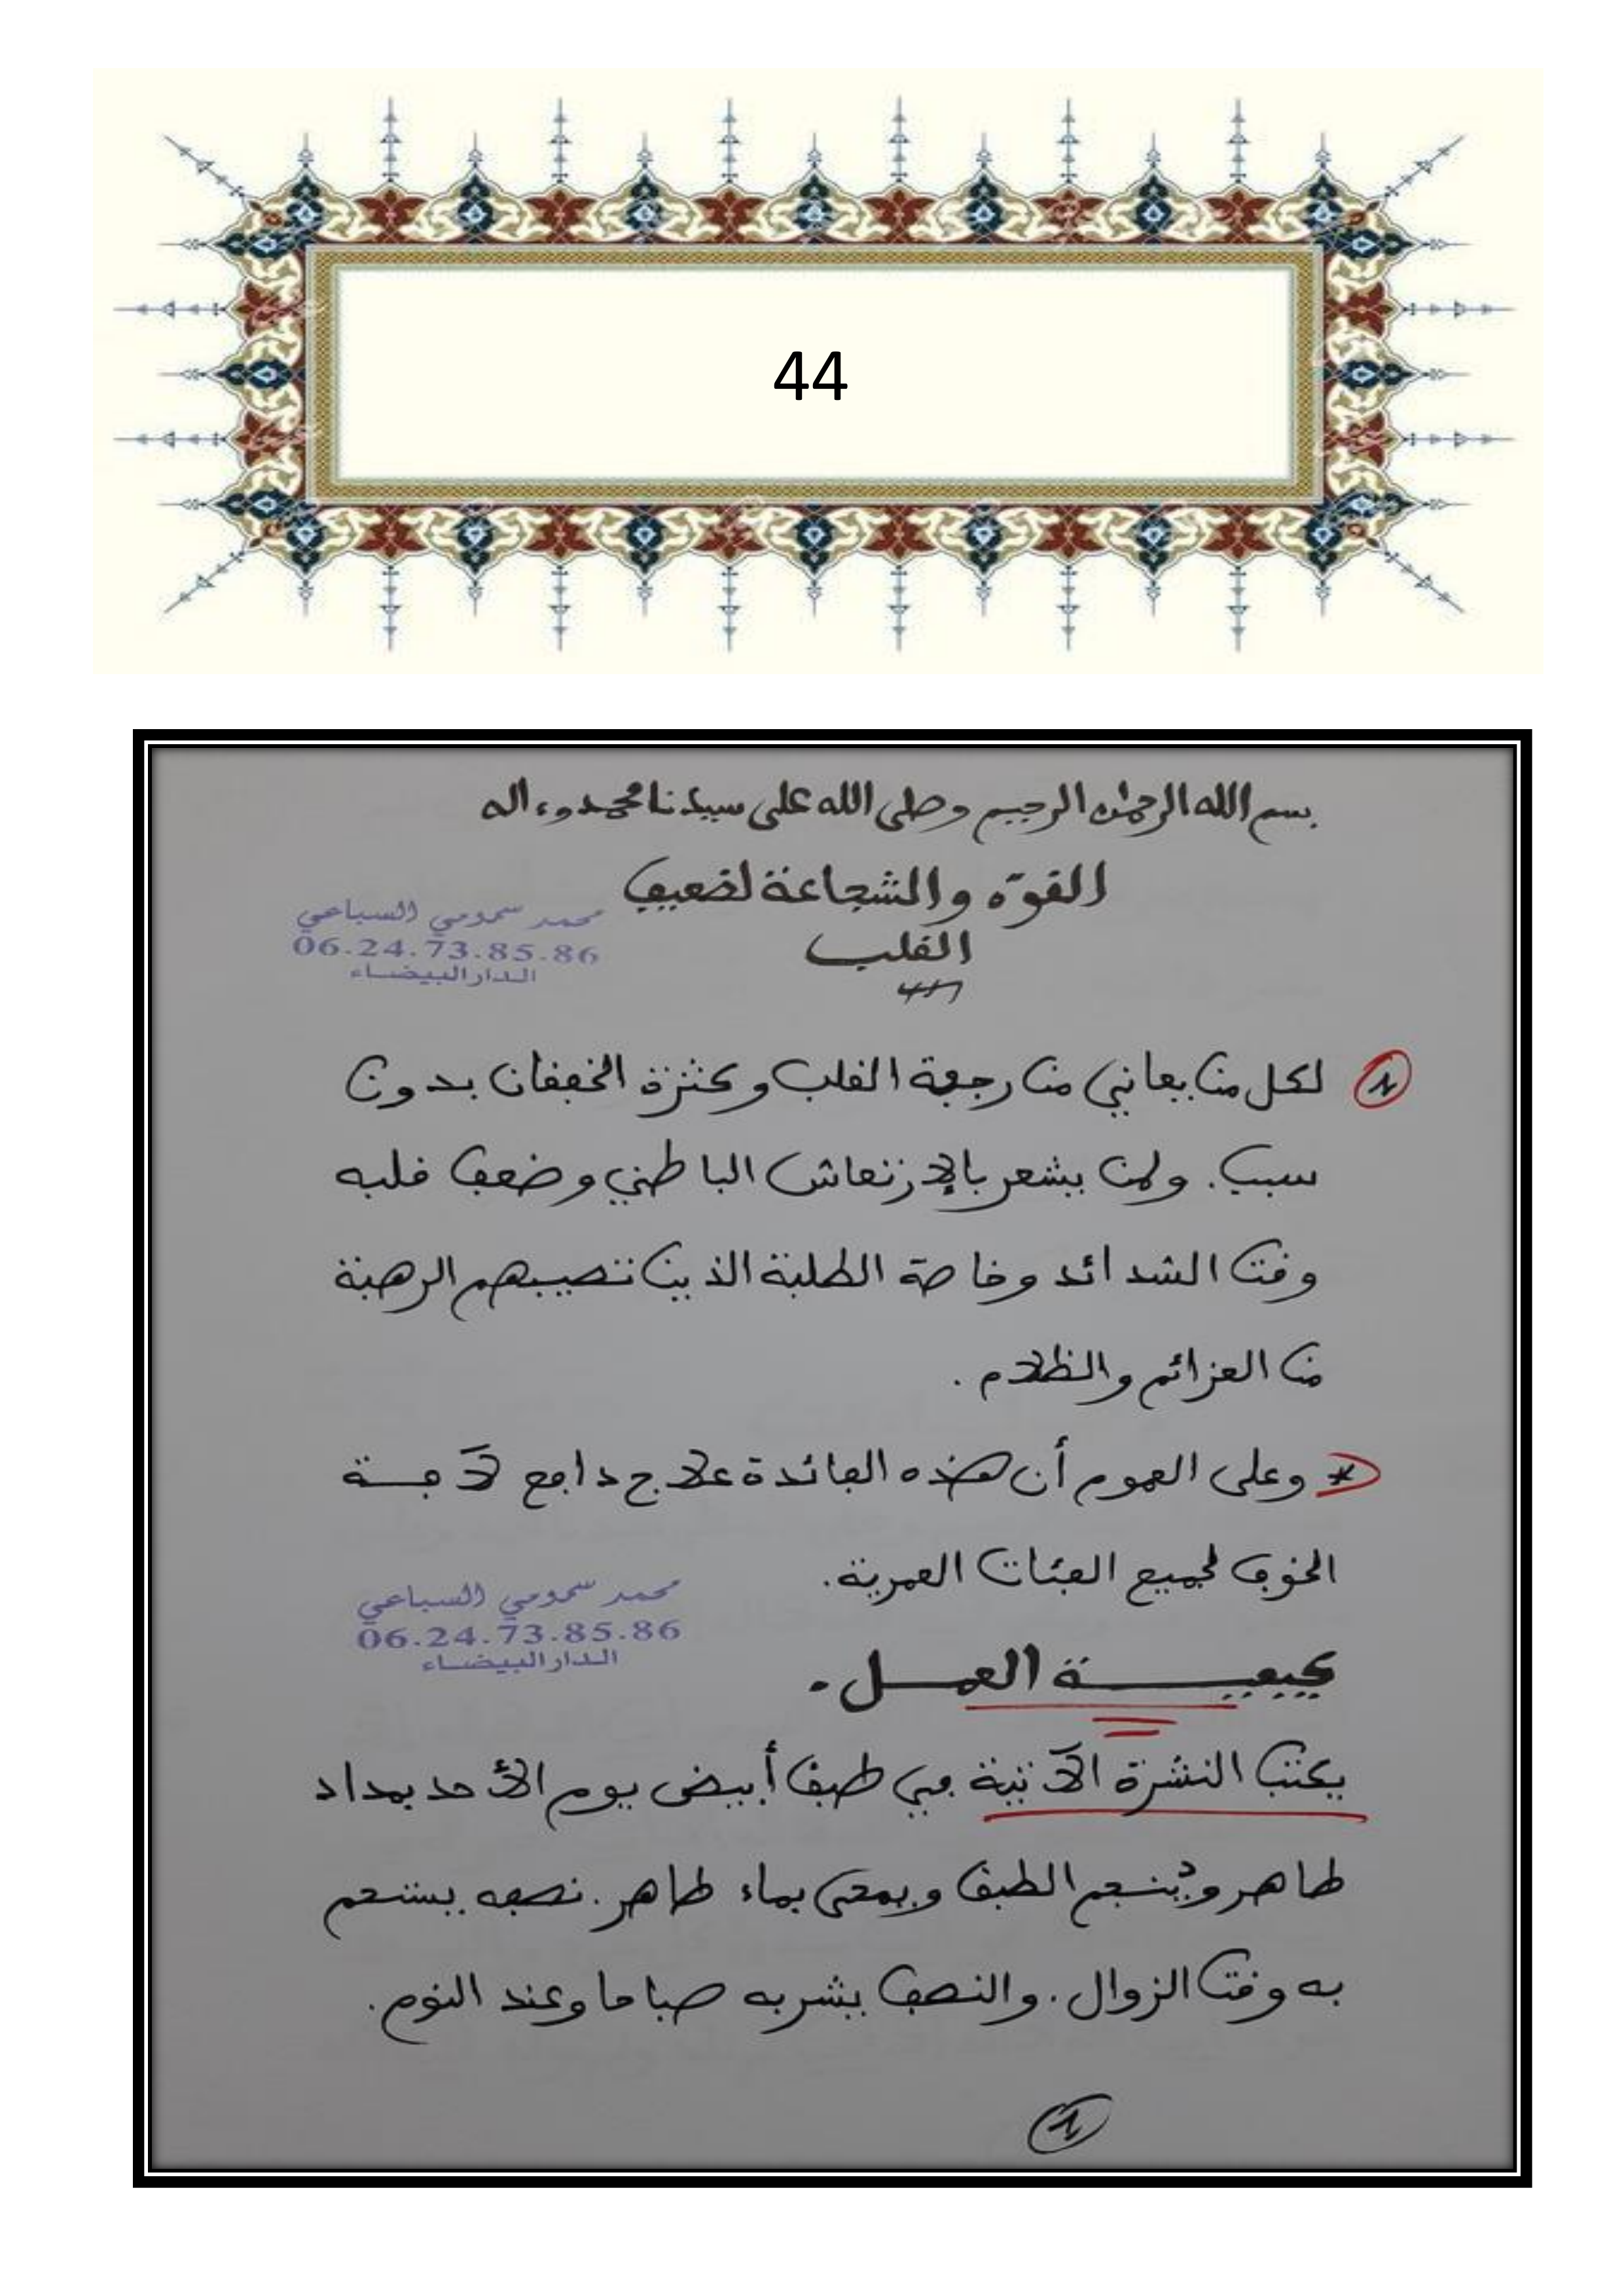 44
بسم الله الرحمن الرحيم وصلى الله على سيدنا محمد وءاله
القوّه والشجاعة لضعيف
القلب
محمد سمومي السباعي
06.24.73.85.86
الدار البيضاء
1 لكل من يعاني من رجفة القلب وكثرة الخفقان بدون
سبب. ولمن يشعر بالإرتعاش الباطني وضعف قلبه
وقت الشدائد وخاصة الطلبة الذين تصيبهم الرهبة
من العزائم والظلام.
* وعلى العموم أن هذه الفائدة علاج دافع لآفة
الخوف لجميع الفئات العمرية.
محمد سمومي السباعي
06.24.73.85.86
الدار البيضاء
كيفية العمل.
يكتب النشرة الآتية في طبق أبيض يوم الأحد بمداد
طاهر و الطبق ويمحى بماء طاهر. نصفه يستحم
به وقت الزوال. والنصف يشربه صباحا وعند النوم.
1